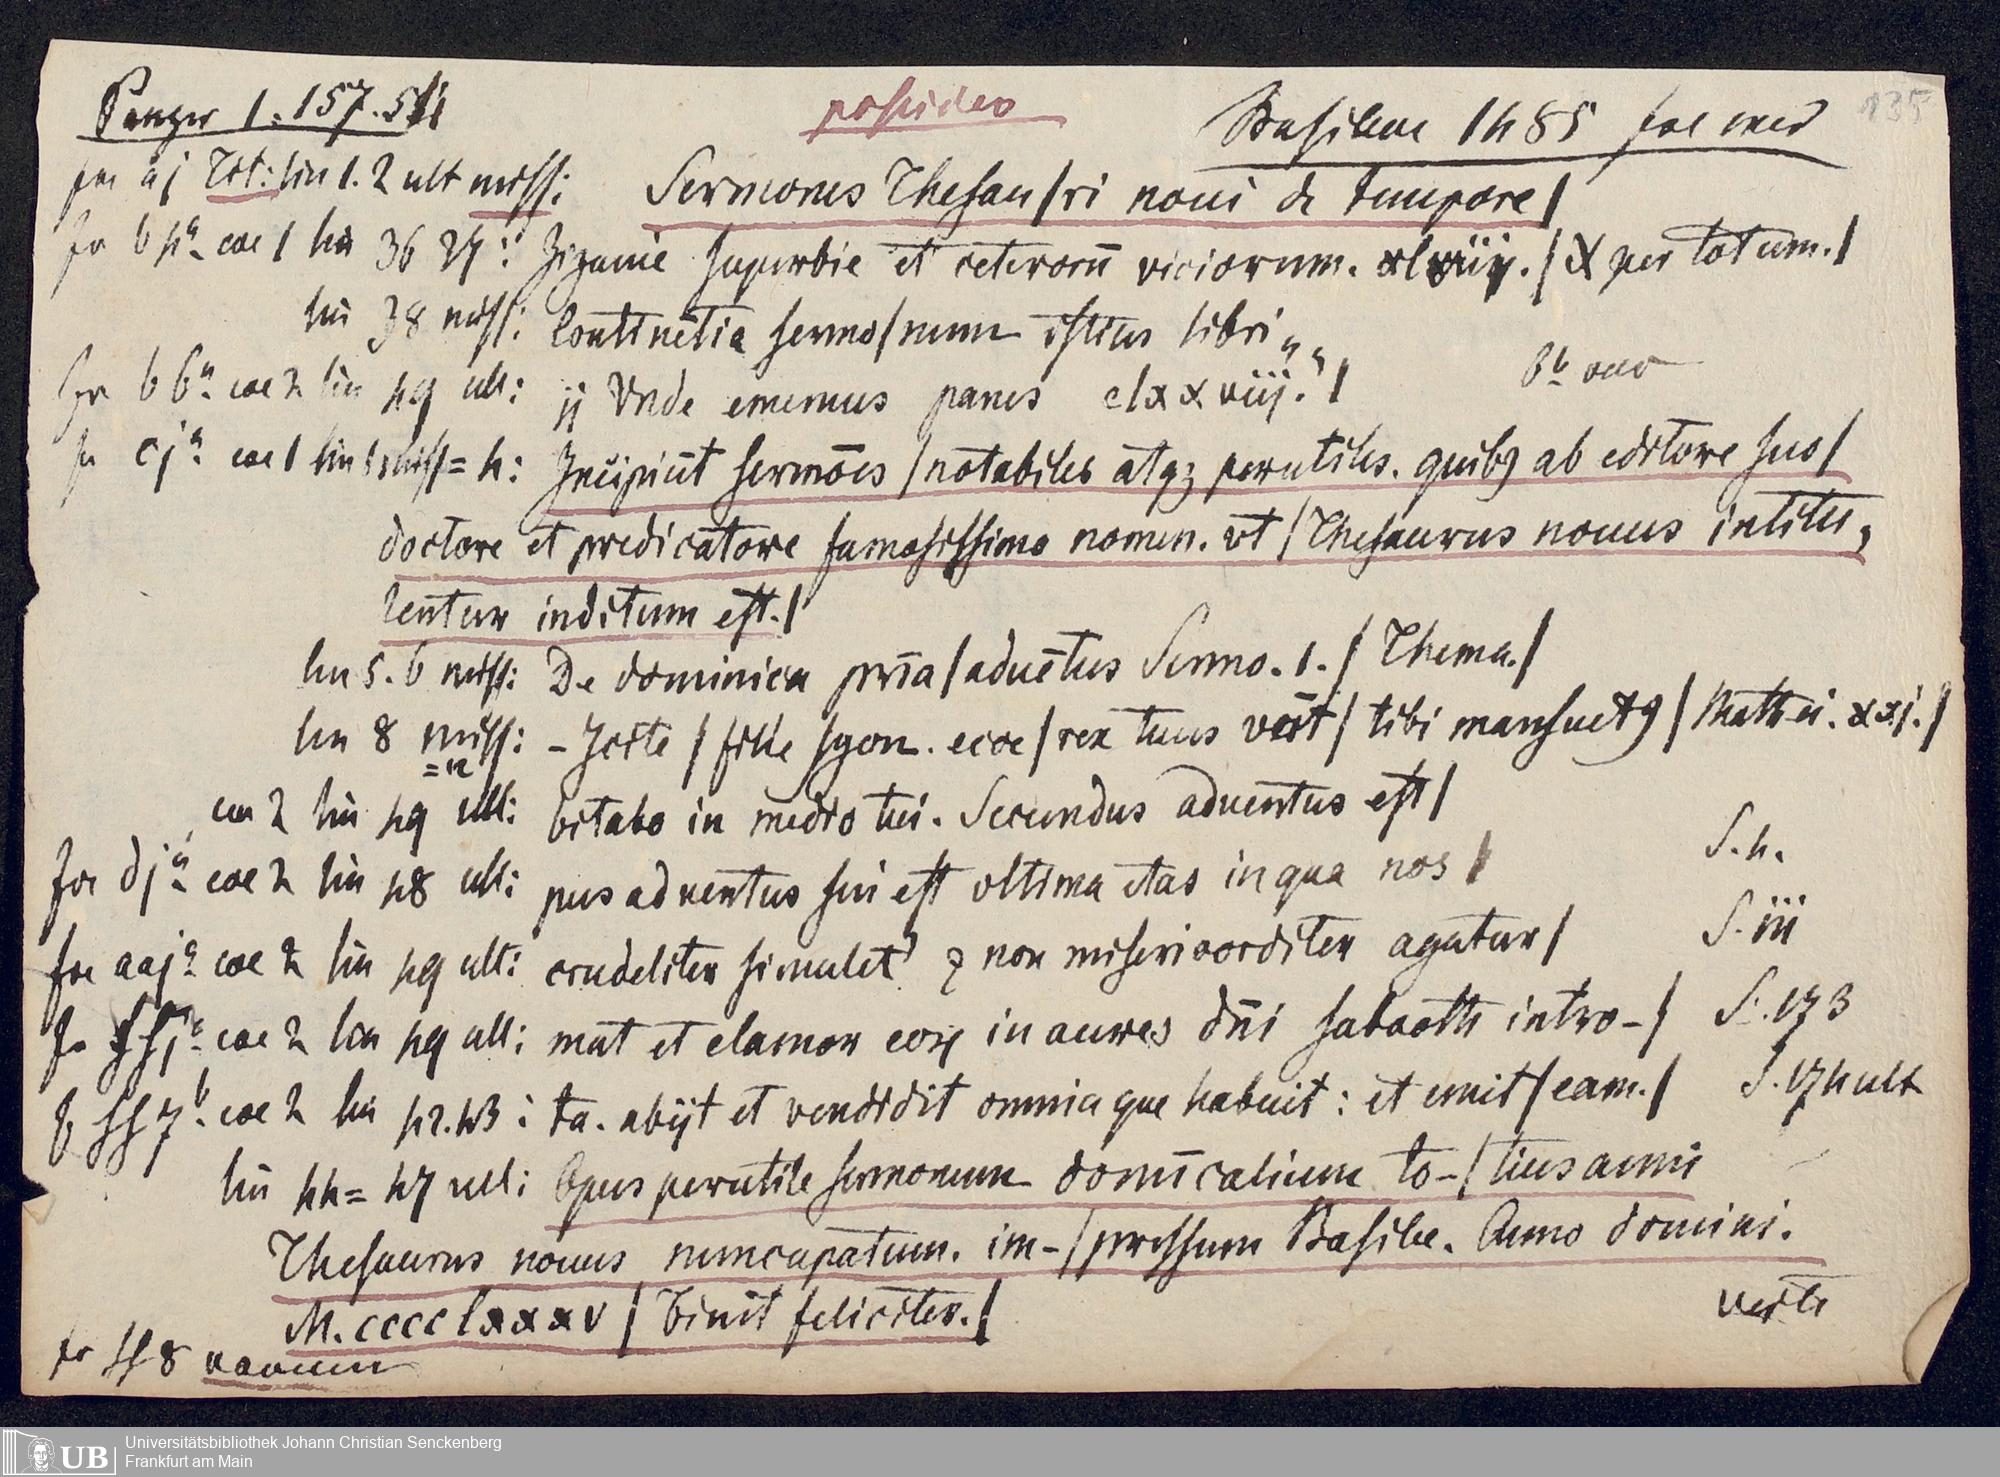 Panzer 1. 157. 51
possideo
Basileae 1485 foe med
135
foe aj Tit: lin 1. 2 ult miss: Sermones Thesau/ri noui de tempore/
fo b 4a coe 1 lin 36 37: Zizanie superbie et ceterorū viciorum. / X per totum./
lin 38 miss: Contīnētia sermo/num istius libri
fo b 6a coe 2 lin 49 ult: ij Vnde ememus panes clxxviij./ 6b vac
fo cja coe 1 lin 1 miss = 4: Incipiūt sermōes /notabiles atqz perutiles. quibꝯ ab editore suo/
doctore et predicatore famosissimo nomen. vt / Thesaurus nouus intitu,
lentur inditum est./
lin 5. 6 miss: De dominica prīa /aduētus Sermo. 1. / Thema./
lin 8 miss: - Icite / filie syon. ecce / rex tuus veīt / tibi mansuetꝯ / Mathei. xxj./
= n
coe 2 lin 49 ult: bitabo in medio tui. Secundus aduentus est /
foe dja coe 2 lin 48 ult: pus aduentus sui est vltima etas in qua nos / S. 4.
foe aaja coe 2 lin 49 ult: crudeliter simulet ꝫ non misericorditer agatur / S. iii
fo ffja coe 2 lin 49 ult: mut et clamor eoꝝ in aures dn̄i sabaoth intro- / S. 173
fo ff7b coe 2 lin 42. 43: ta. abijt et vendidit omnia que habuit: et emit / eam. / S. 174 ult
lin 44 = 47 ult: Opus perutile sermonum domīcalium to-/tius anni
Thesaurus nouus nuncupatum. im-/pressum Basilee. Anno domini.
M.cccclxxxv / Finit feliciter. /
verte
fo ff 8 vacuum
UB
Universitätsbibliothek Johann Christian Senckenberg
Frankfurt am Main